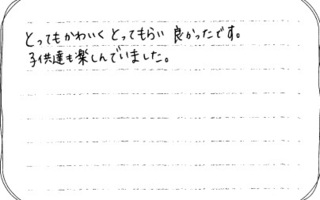 とってもかわいく とってもらい 良かったです。
子供達も楽しんでいました。